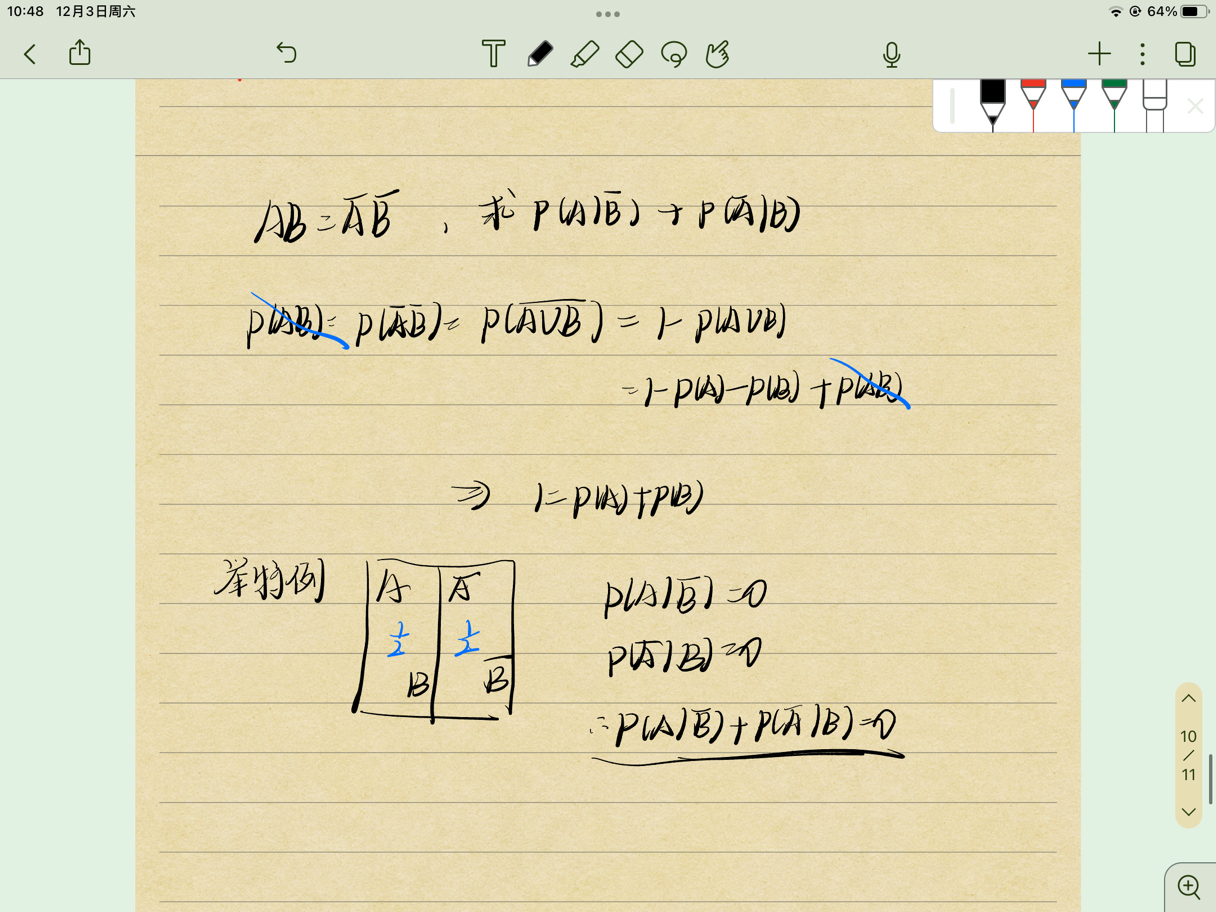 10:48 12月3日周六
64%
AB=A̅B̅ , 求 P(A|B̅) + P(A̅|B)
P(AB)= P(A̅B̅)= P(A̅U̅B̅) = 1- P(AUB)
=1-P(A)-P(B)+P(AB)
⇒ 1=P(A)+P(B)
举特例
A A̅
1/2 1/2
B B̅
P(A|B̅)=0
P(A̅|B)=0
∴P(A|B̅)+P(A̅|B)=0
10
/
11